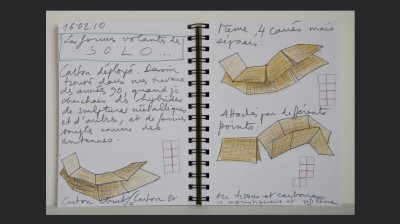 16.02.10
Les formes volantes de
SOLO...
Carton déployé. Dessin
trouvé dans mes travaux
des années 90, quand je
cherchais des hybrides
de sculptures métalliques
et d'autres, et de formes
simples comme des
antennes.
Carton
Carton Or
Même 4 carrés mais
séparés.
Attaché par différents
points.
des tissus et carbone